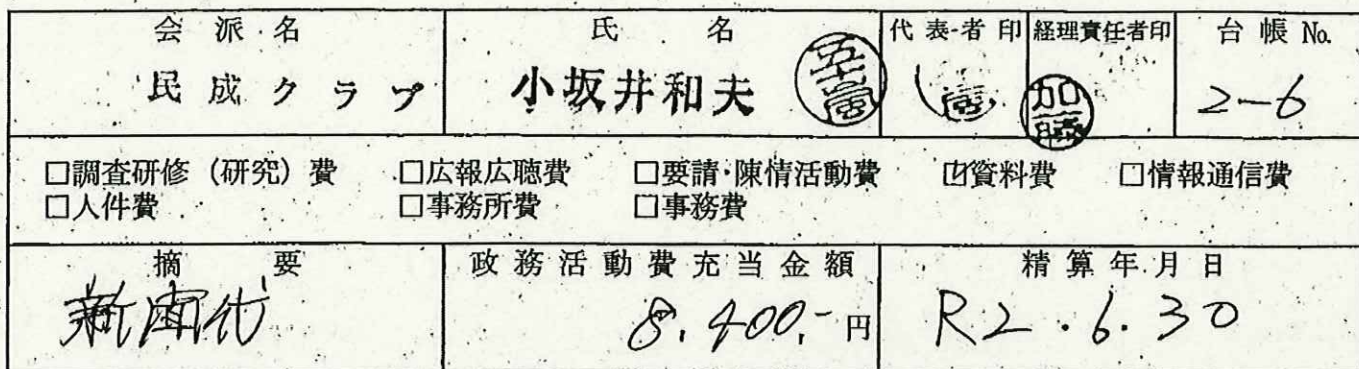 会派名 氏名 代表者印 経理責任者印 台帳No.
民成クラブ 小坂井和夫 加藤 2-6
□調査研修(研究)費 □広報広聴費 □要請・陳情活動費 ☑資料費 □情報通信費
□人件費 □事務所費 □事務費
摘要 政務活動費充当金額 精算年月日
新聞代 8,400,-円 R2.6.30